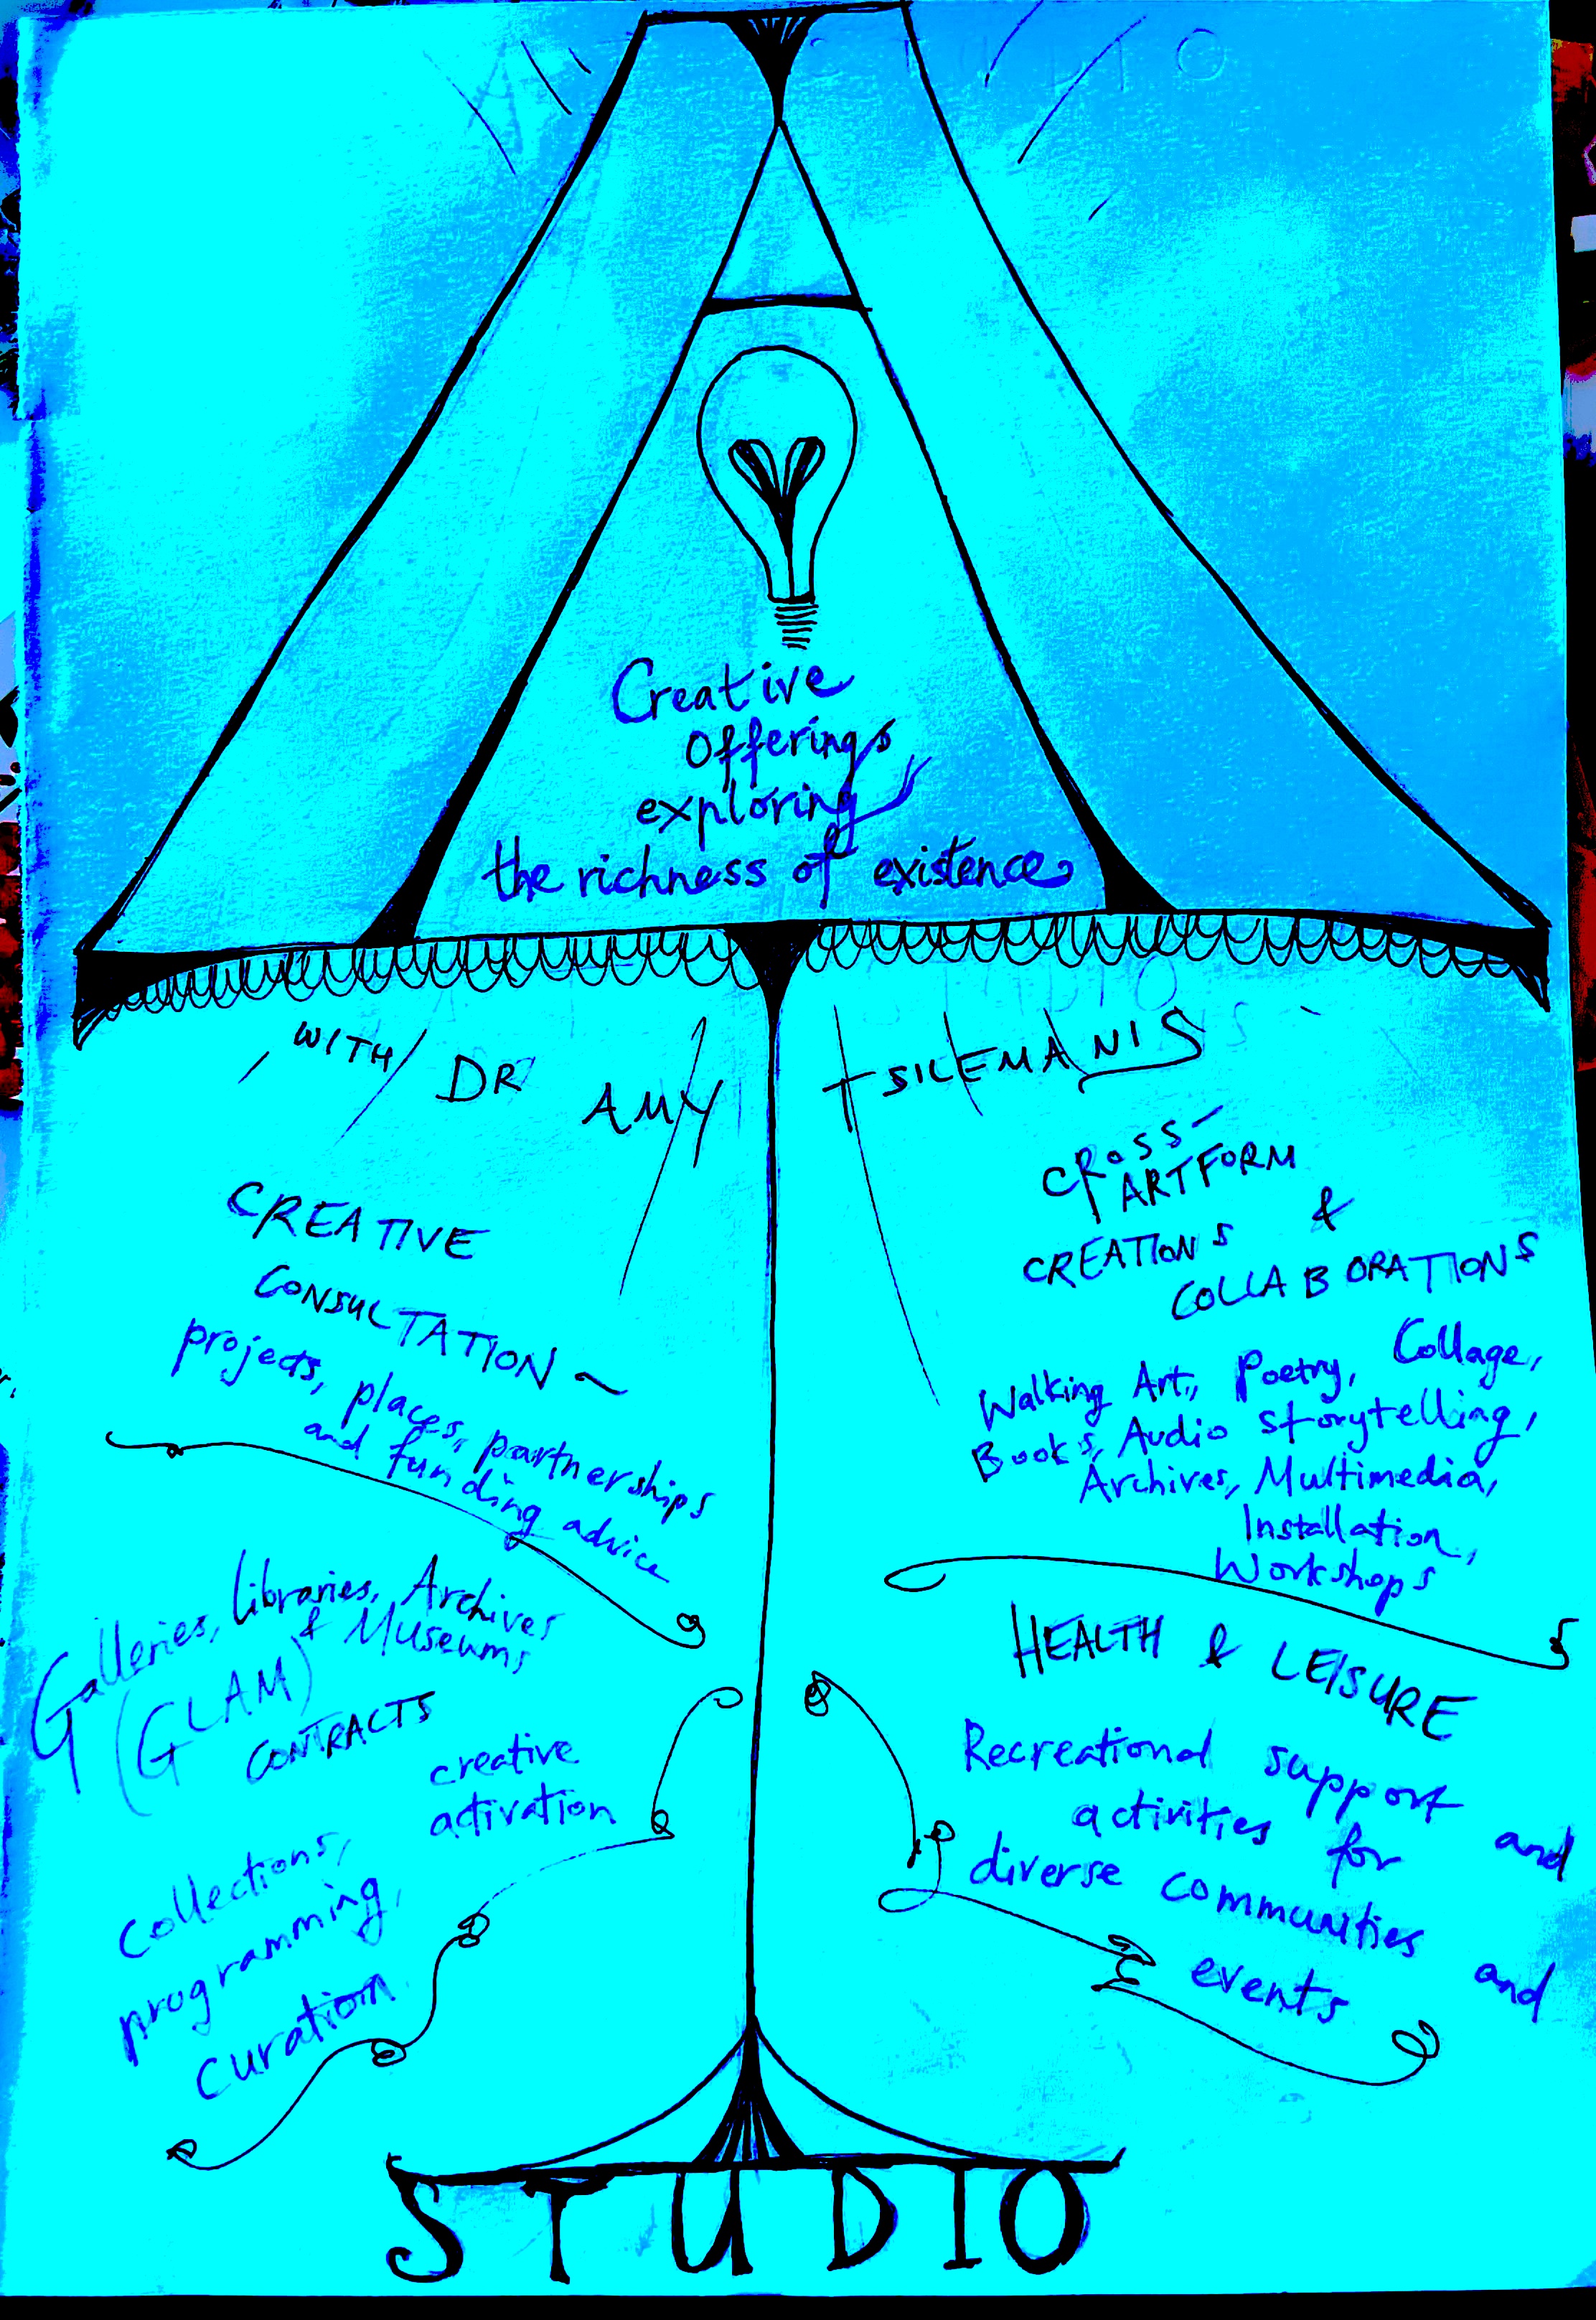 A
Creative
Offerings
exploring
the richness of existence
WITH DR AMY TSILEMANIS
CREATIVE
CONSULTATION ~
projects, places, partnerships
and funding advice
Galleries, Libraries, Archives
& Museums
(GLAM)
CONTRACTS
creative
activation
Collections,
programming,
curation
CROSS-
ARTFORM
CREATIONS &
COLLABORATIONS
Walking Art, Poetry, Collage,
Books, Audio storytelling,
Archives, Multimedia,
Installation,
Workshops
HEALTH & LEISURE
Recreational support and
activities for
diverse communities and
events
STUDIO